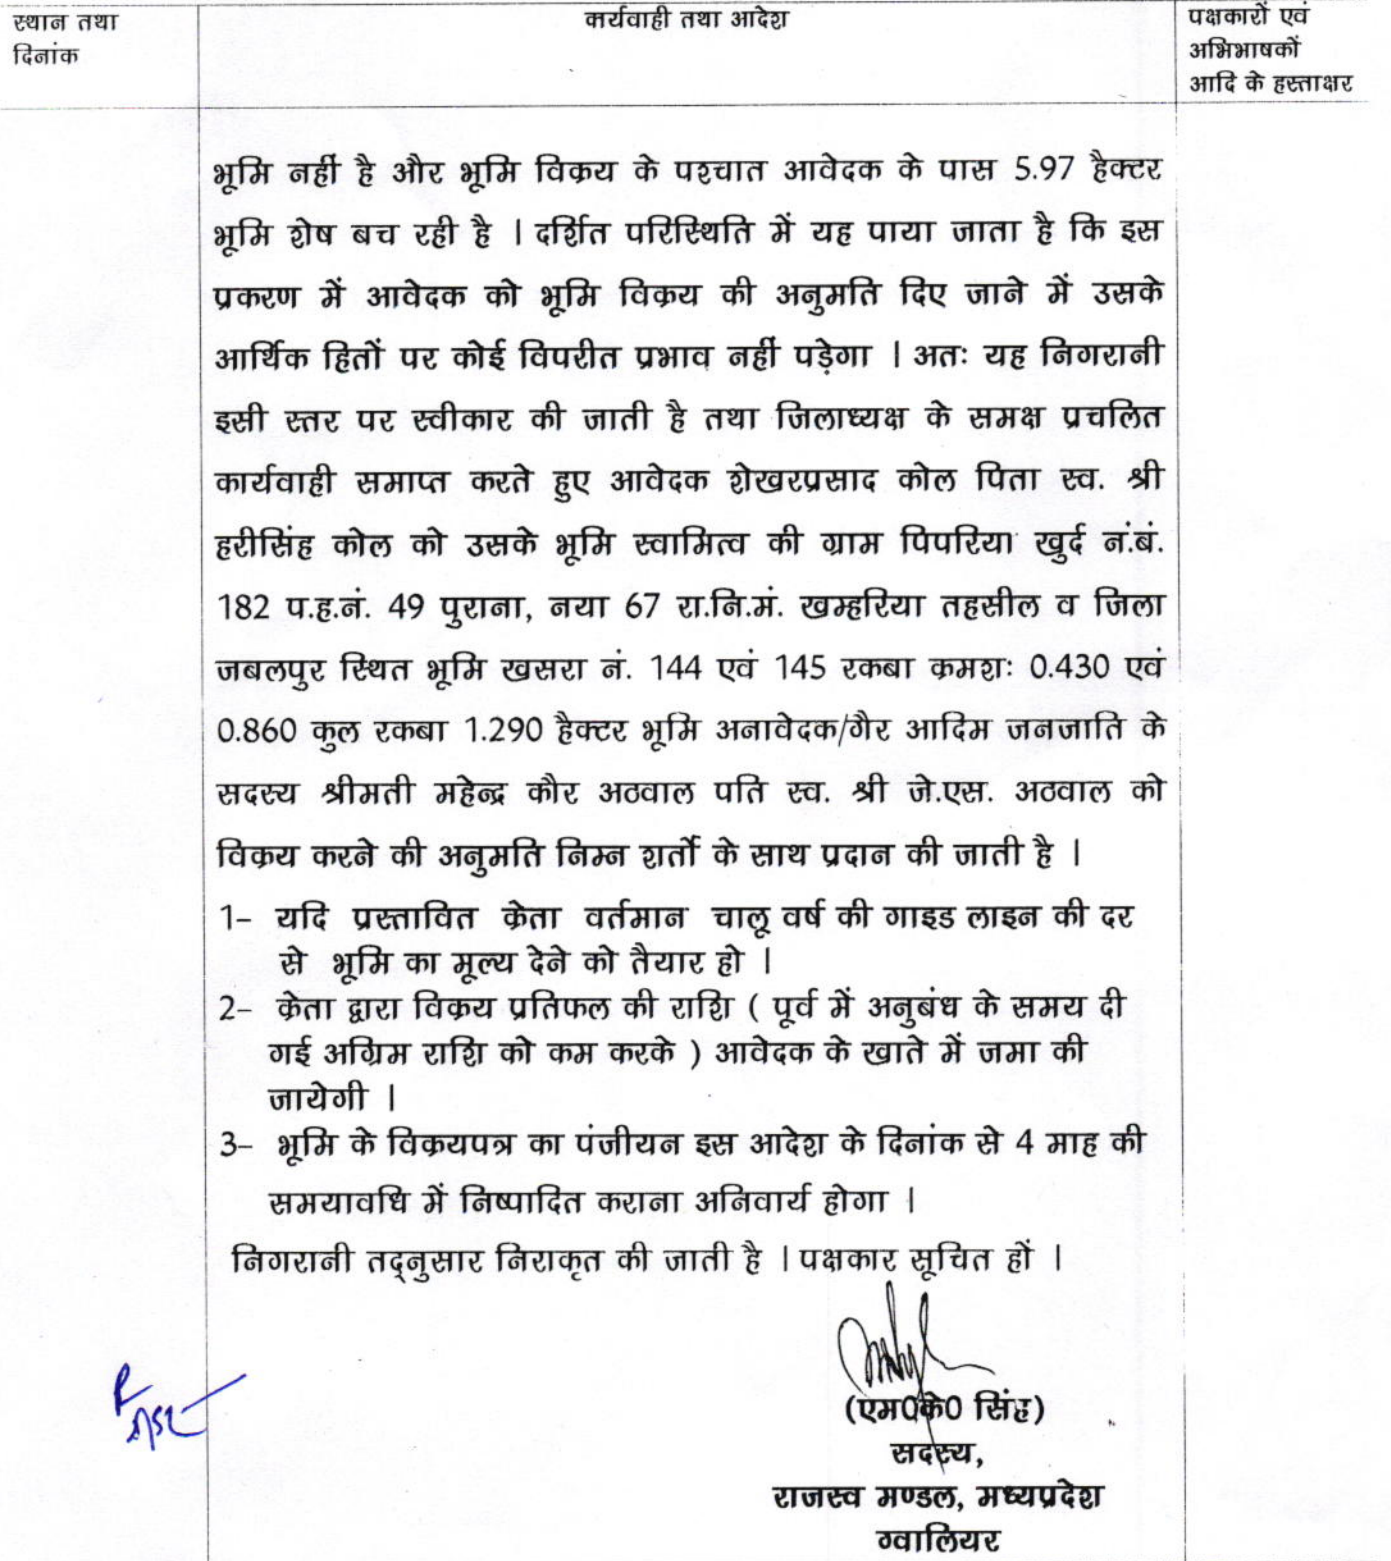 स्थान तथा
दिनांक
कार्यवाही तथा आदेश
पक्षकारों एवं
अभिभाषकों
आदि के हस्ताक्षर
भूमि नहीं है और भूमि विक्रय के पश्चात आवेदक के पास 5.97 हैक्टर
भूमि शेष बच रही है । दर्शित परिस्थिति में यह पाया जाता है कि इस
प्रकरण में आवेदक को भूमि विक्रय की अनुमति दिए जाने में उसके
आर्थिक हितों पर कोई विपरीत प्रभाव नहीं पड़ेगा । अतः यह निगरानी
इसी स्तर पर स्वीकार की जाती है तथा जिलाध्यक्ष के समक्ष प्रचलित
कार्यवाही समाप्त करते हुए आवेदक शेखरप्रसाद कोल पिता स्व. श्री
हरीसिंह कोल को उसके भूमि स्वामित्व की ग्राम पिपरिया खुर्द नं.बं.
182 प.ह.नं. 49 पुराना, नया 67 रा.नि.मं. खम्हरिया तहसील व जिला
जबलपुर स्थित भूमि खसरा नं. 144 एवं 145 रकबा क्रमशः 0.430 एवं
0.860 कुल रकबा 1.290 हैक्टर भूमि अनावेदक/गैर आदिम जनजाति के
सदस्य श्रीमती महेन्द्र कौर अठवाल पति स्व. श्री जे.एस. अठवाल को
विक्रय करने की अनुमति निम्न शर्तो के साथ प्रदान की जाती है ।
1– यदि प्रस्तावित क्रेता वर्तमान चालू वर्ष की गाइड लाइन की दर
से भूमि का मूल्य देने को तैयार हो ।
2– क्रेता द्वारा विक्रय प्रतिफल की राशि ( पूर्व में अनुबंध के समय दी
गई अग्रिम राशि को कम करके ) आवेदक के खाते में जमा की
जायेगी ।
3– भूमि के विक्रयपत्र का पंजीयन इस आदेश के दिनांक से 4 माह की
समयावधि में निष्पादित कराना अनिवार्य होगा ।
निगरानी तद्नुसार निराकृत की जाती है । पक्षकार सूचित हों ।
(एम0के0 सिंह)
सदस्य,
राजस्व मण्डल, मध्यप्रदेश
ग्वालियर